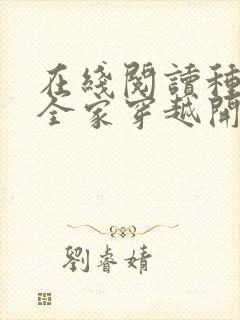 在綫閱讀種
全家穿越開
劉睿婧